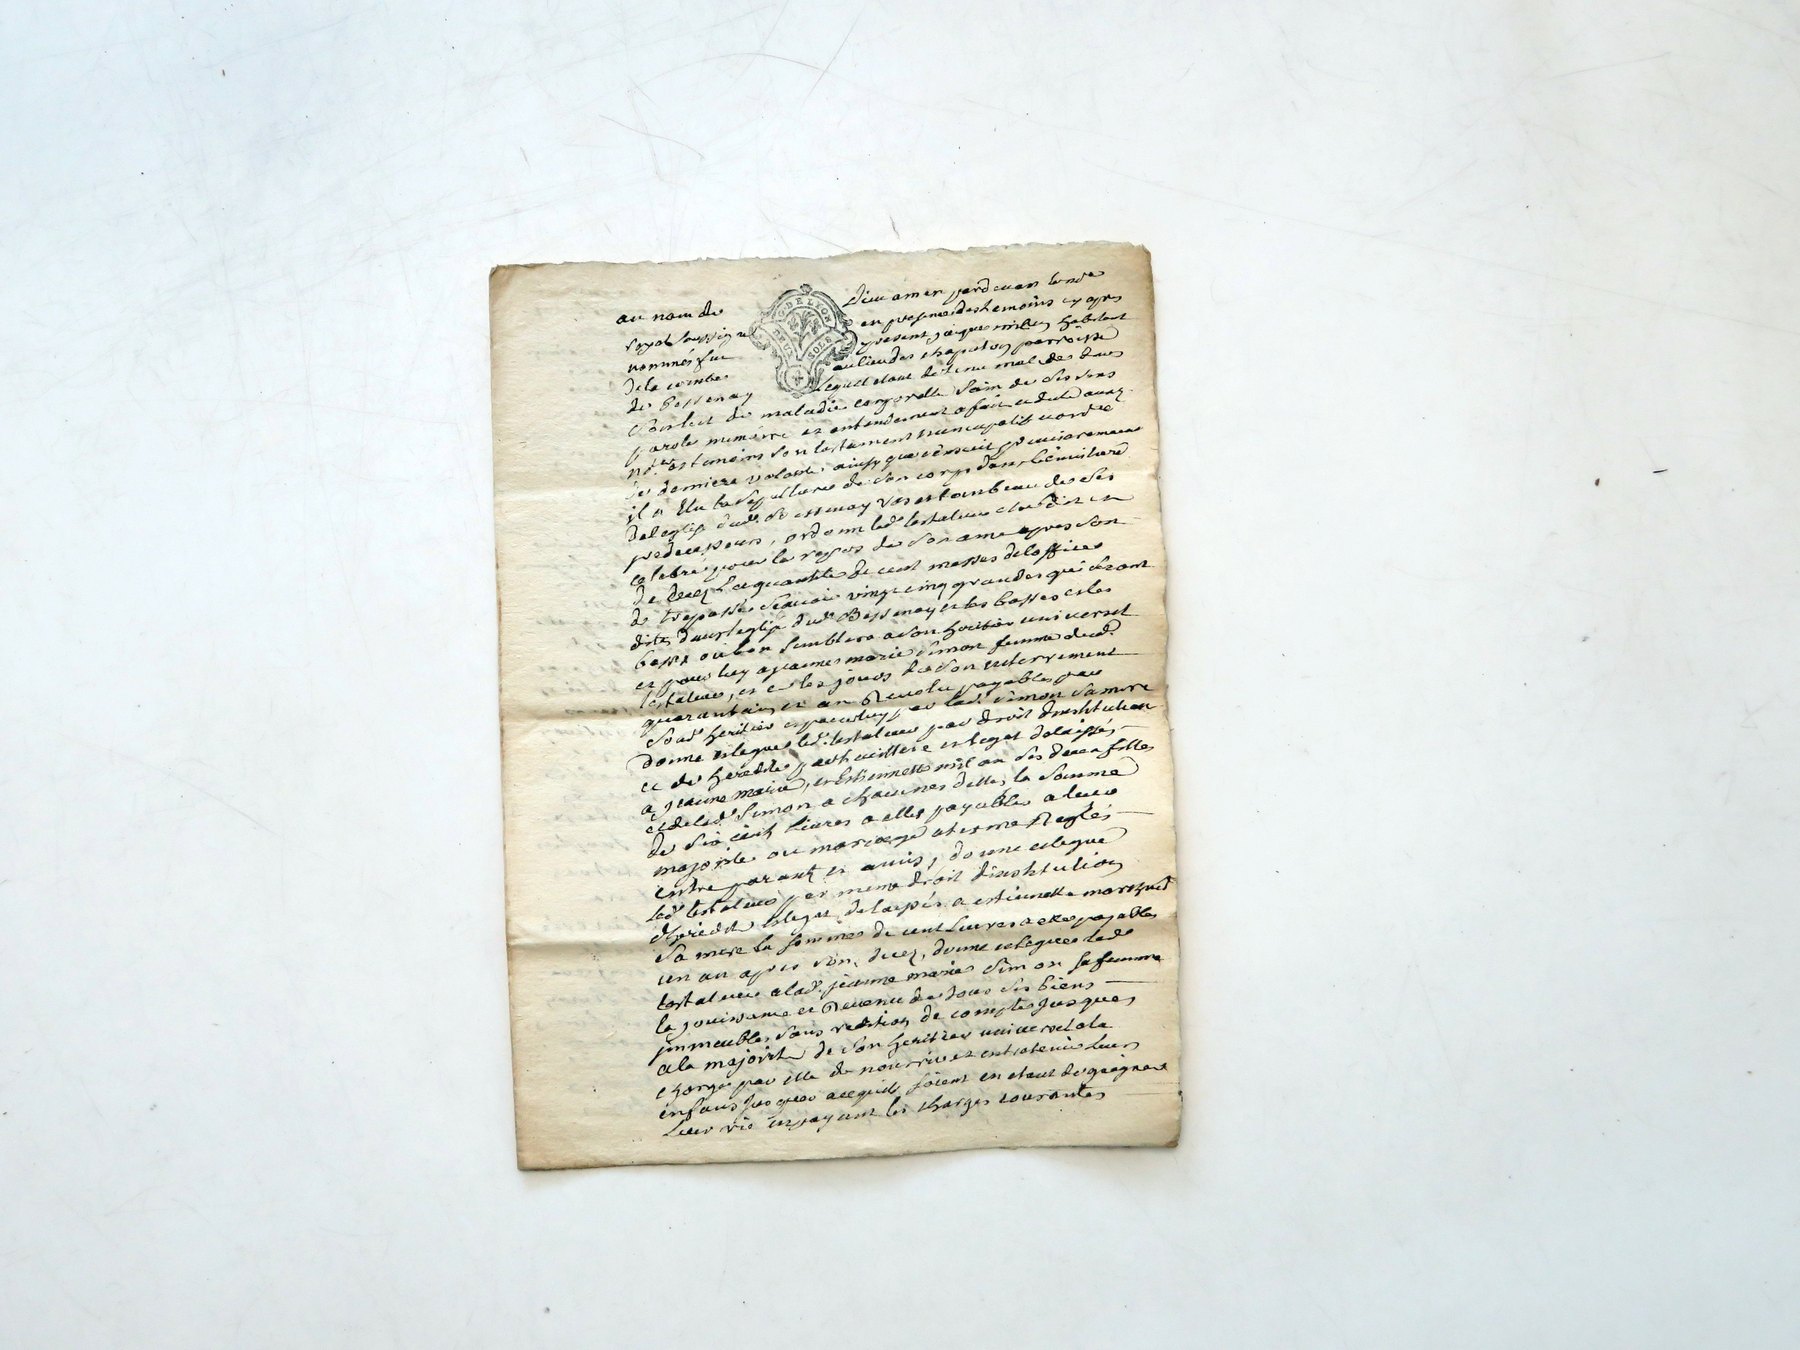 au nom de Dieu amen pardevan le no.re
royal soussigné en presence des temoins cy apres
nommés fut present jacque habitant
de la combe au lieu de parroisse
de Bessenay lequel etant detenu mal des
de maladie corporelle sain de ses sens
parole memoire et entendement a fait
no.re et temoins son testament nuncupatif
de derniere volonté, ainsy que sensuit premierement
il a élu la sepulture de son corps dans le cimitiere
de leglise dud. Bessenay vas et tombeau de ses
predecesseurs, ordonne led. testateur dit
celebré pour le repos de son ame apres son
decez la quantité de cent messes de loffice
de trepassés scavoir vingt cinq grandes qui seront
dites dans leglise dud. Bessenay et les basses
ou bon semblera a son heritier universel
et pour luy a jeanne marie simon femme dud.
testateur, et ce les jours de son enterrement
quarantain et an revolu payables par
sond. heritier et pour luy par lad. simon sa mere
donne et legue led. testateur par droit dinstitution
et de heredité particuliere et leget delaissés
a jeanne marie, et estiennette ses deux filles
et de lad. simon a chacunes delles la somme
de six cent livres a elles payables a leur
majorité ou mariage aterme reglés
entre parant et amis, donne et legue
led. testateur par meme droit dinstitution
dheredité et legat delaissés a estiennette
sa mere la sommes de cent livres a elle payables
un an apres son decez, donne et legue led.
testateur a lad. jeanne marie simon sa femme
la jouissance et revenu de tous ses biens
immeubles sans redition de compte jusques
a la majorité de son heritier universel a la
charge par elle de nourrir et entretenir leurs
enfans jusques acequils soient en etat de gaigner
leur vie en payant les charges courantes
G. DE LYON
DEUX SOLS